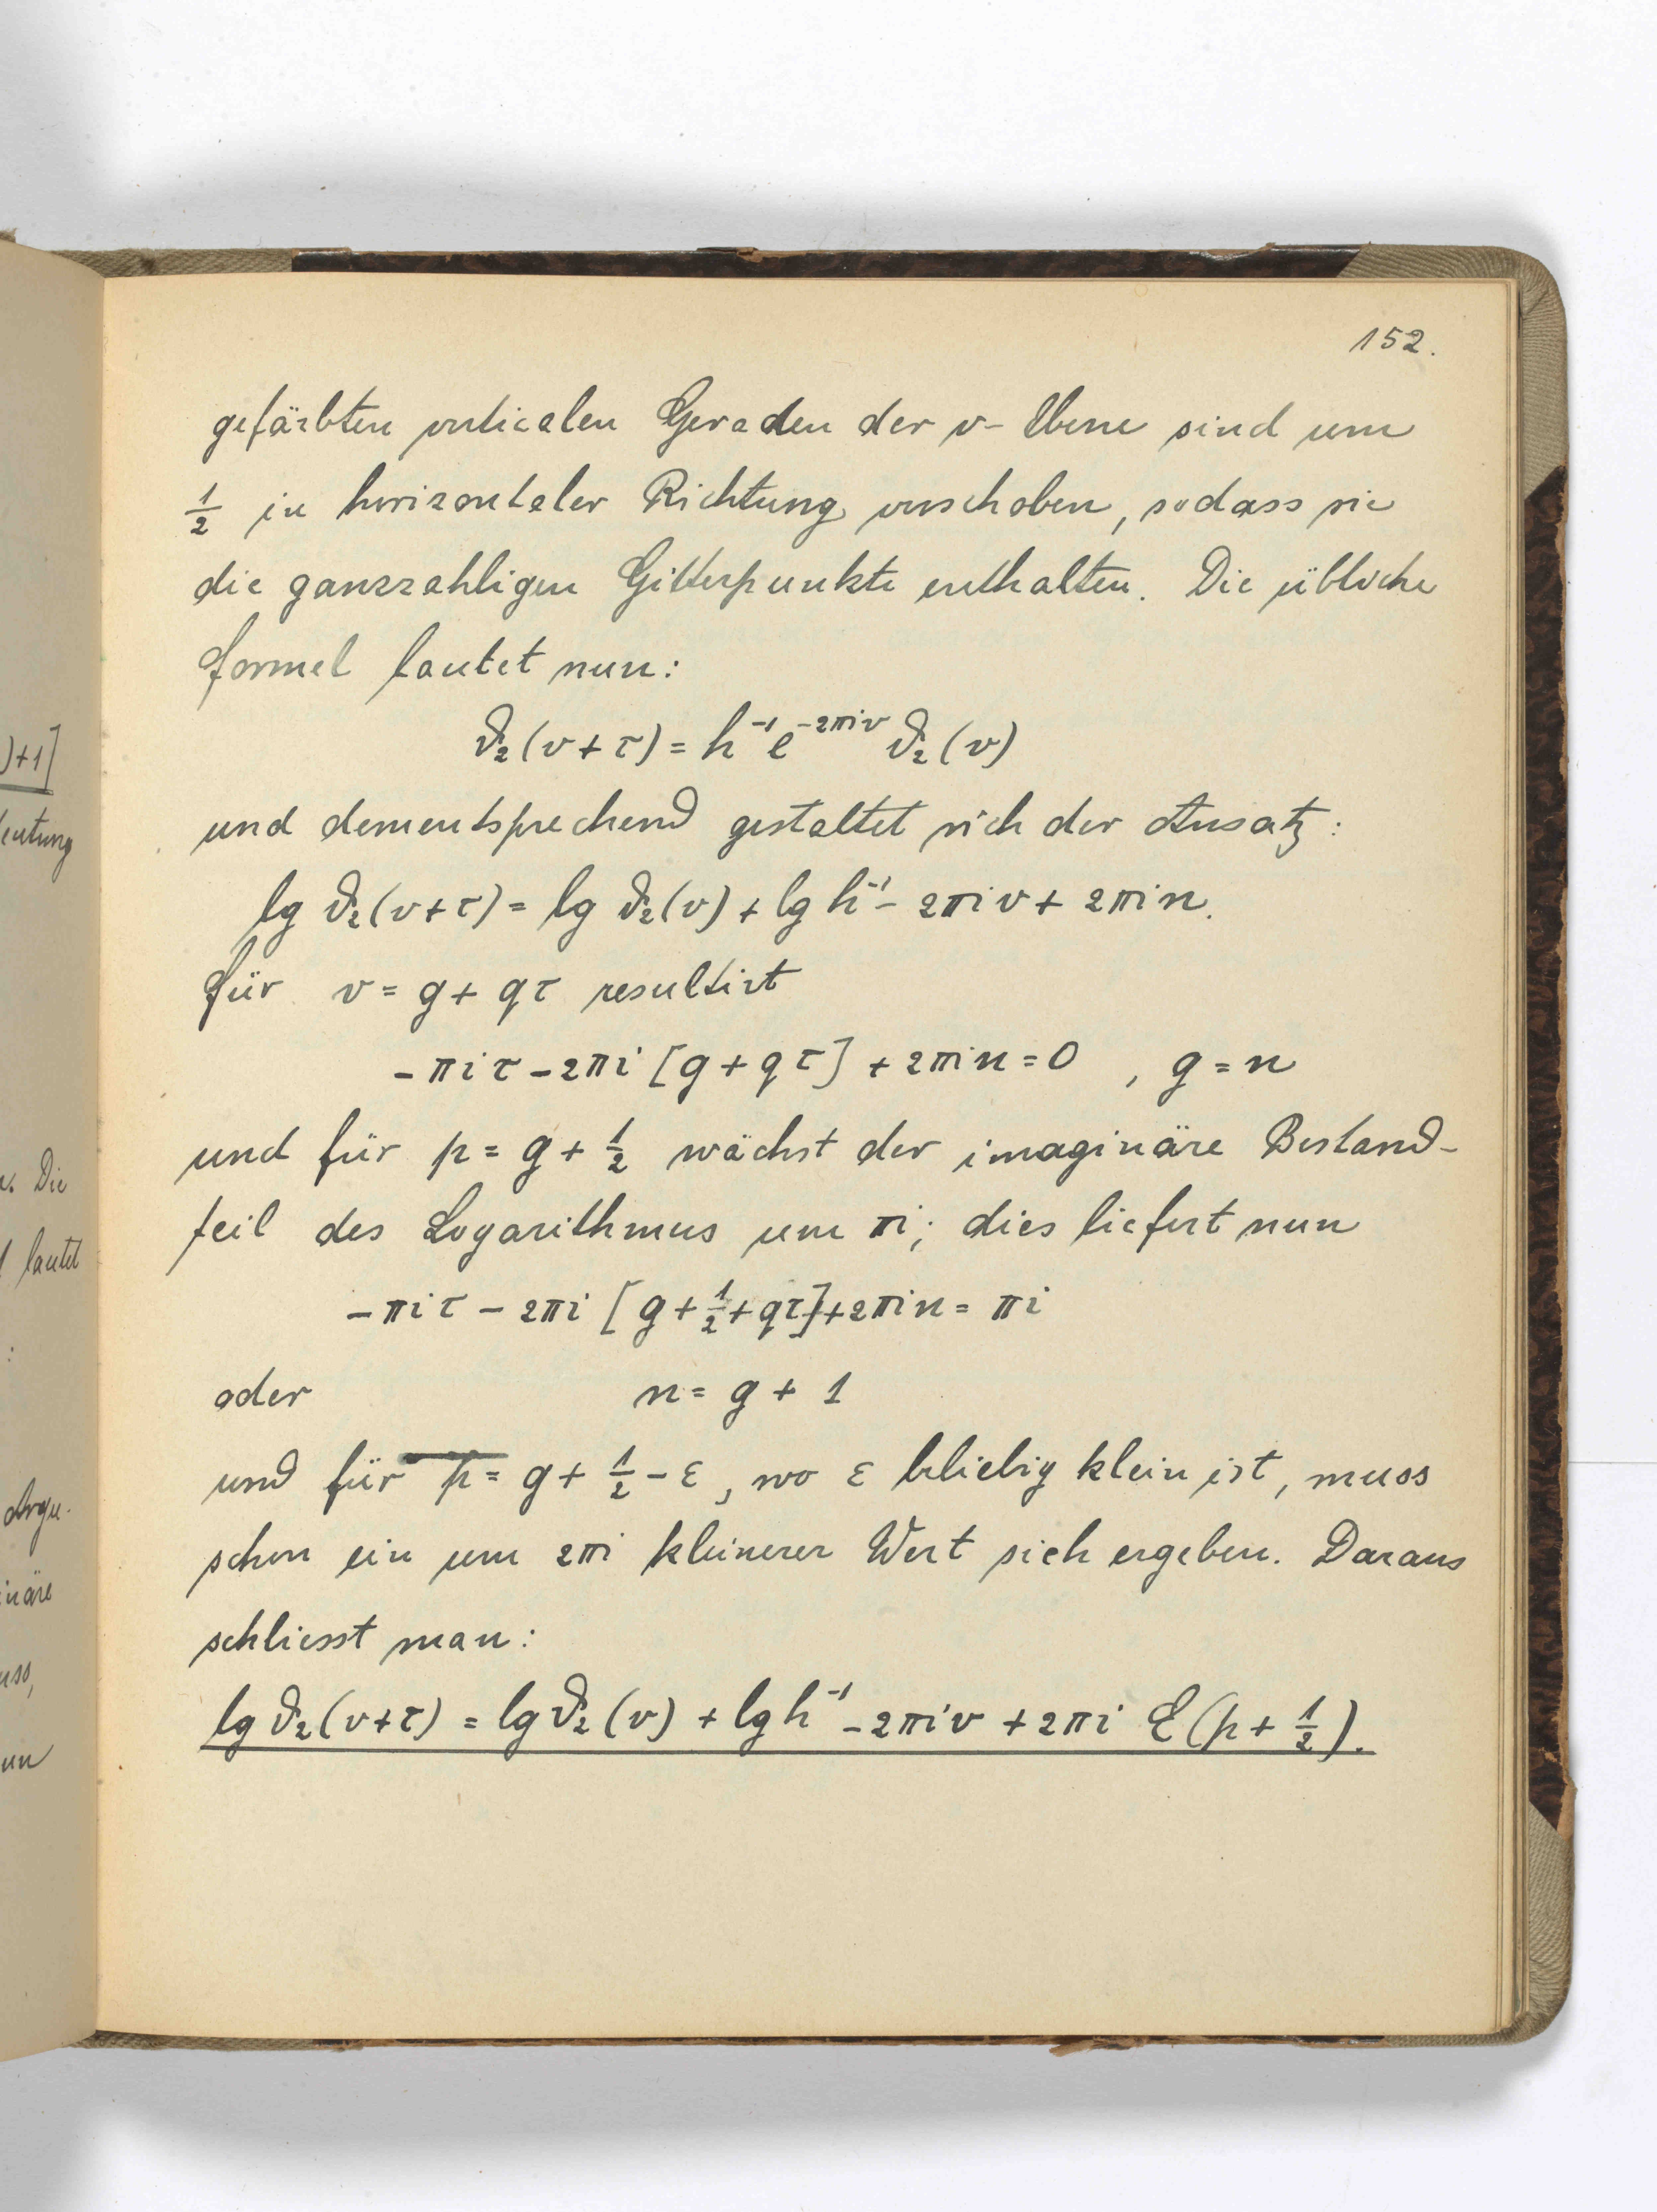 152.
gefärbten verticalen Geraden der v-Ebene sind um
1/2 in horizontaler Richtung verschoben, sodass sie
die ganzzahligen Gitterpunkte enthalten. Die übliche
Formel lautet nun:
ϑ₂(v+τ) = h⁻¹ e^(-2πiv) ϑ₂(v)
und dementsprechend gestaltet sich der Ansatz:
lg ϑ₂(v+τ) = lg ϑ₂(v) + lg h⁻¹ - 2πiv + 2πin.
Für v = g + qτ resultirt
-πiτ - 2πi [g + qτ] + 2πin = 0 , g = n
und für p = g + 1/2 wächst der imaginäre Bestand-
teil des Logarithmus um πi; dies liefert nun
-πiτ - 2πi [g + 1/2 + qτ] + 2πin = πi
oder n = g + 1
und für p = g + 1/2 - ε, wo ε beliebig klein ist, muss
schon ein um 2πi kleinerer Wert sich ergeben. Daraus
schliesst man:
lg ϑ₂(v+τ) = lg ϑ₂(v) + lg h⁻¹ - 2πiv + 2πi E(p + 1/2).
)+1]
eutung
Die
lautet
:
Argu-
inäre
uss,
un